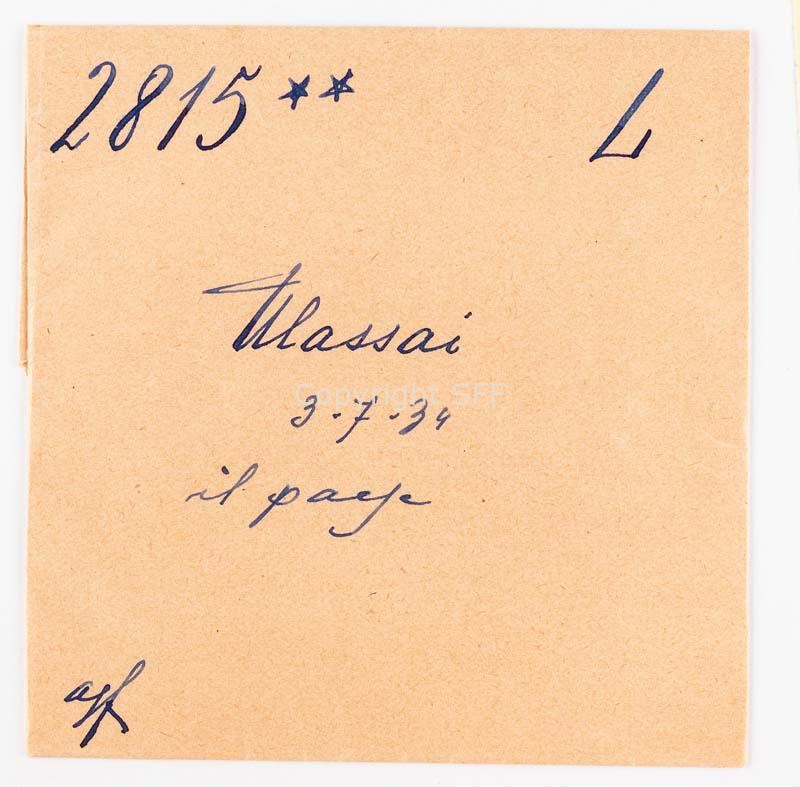 2815** L
Ulassai
Copyright SFF
3.7.34
il paese
agf